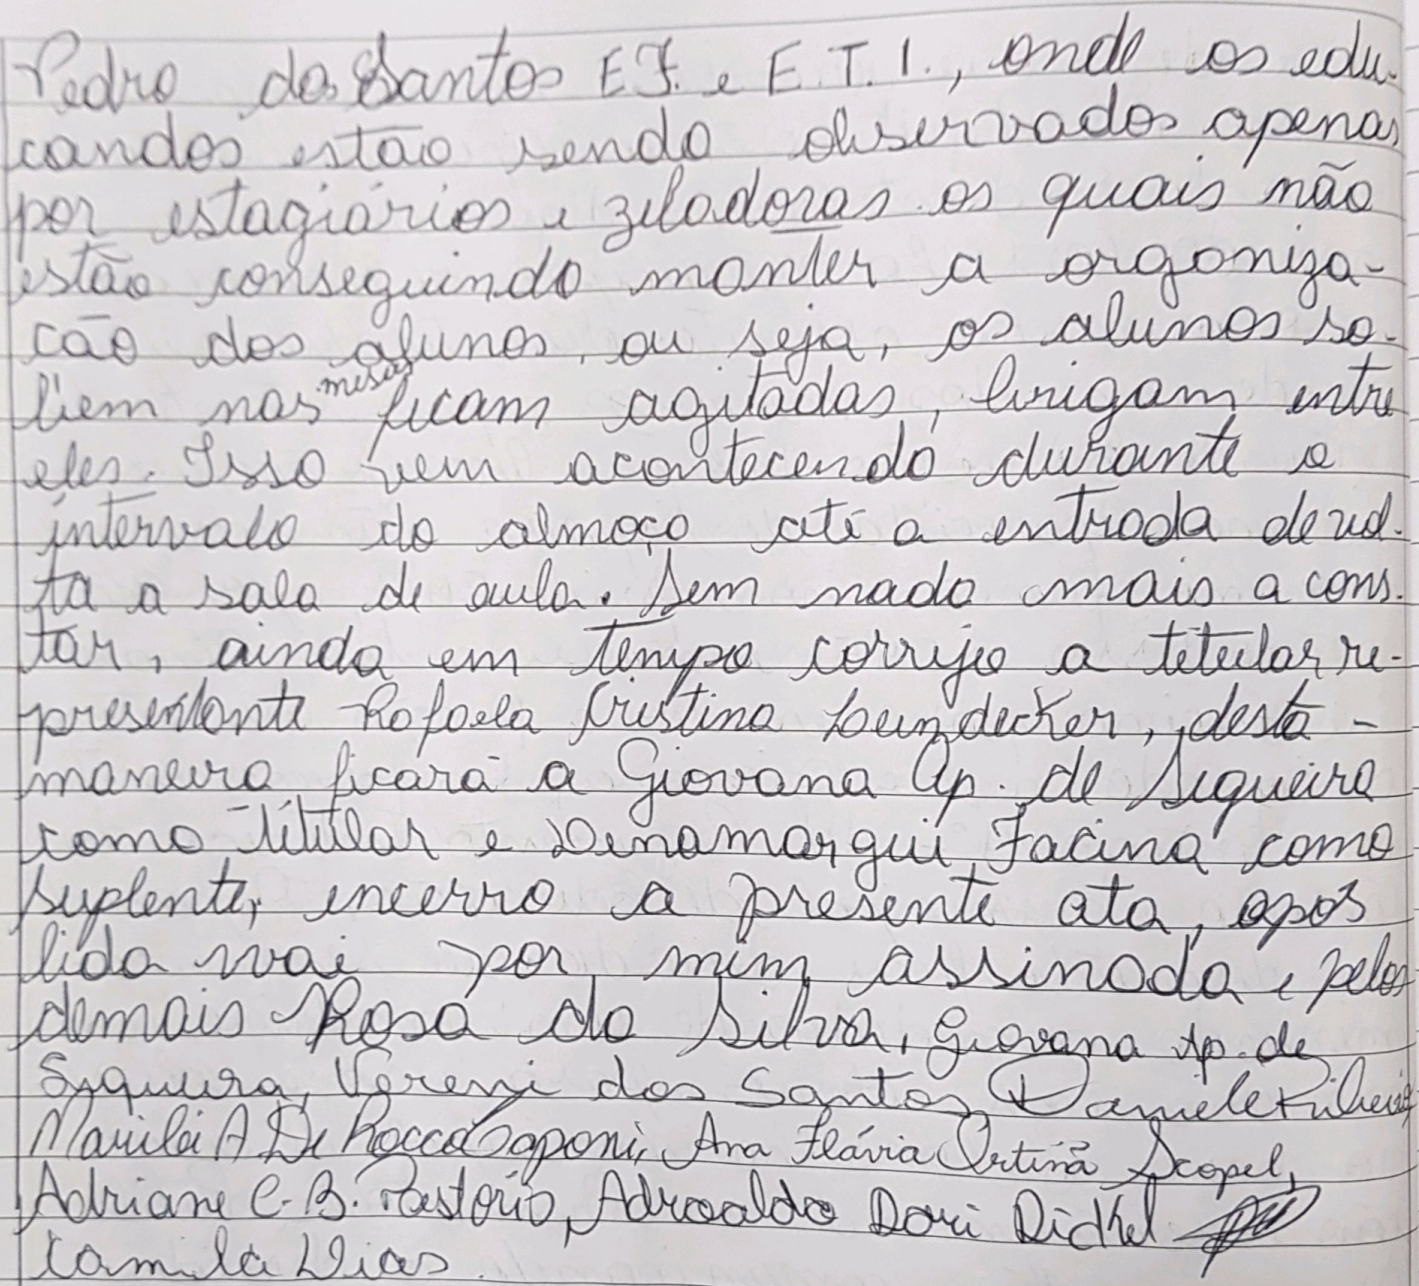 Pedro dos Santos E.F. e E.T.I., onde os edu-
candos estão sendo observados apenas
por estagiários e zeladoras os quais não
estão conseguindo manter a organiza-
cão dos alunos, ou seja, os alunos so-
bem nas mesas ficam agitadas, brigam entre
eles. Isso vem acontecendo durante o
intervalo do almoço até a entrada de
ta a sala de aula. Sem nada mais a cons-
tar, ainda em tempo corrijo a titular re-
presentante Rafaela Cristina desta
maneira ficará a Giovana Ap. de Siqueira
como titular e Facina como
suplente, encerro a presente ata, após
lida vai por mim assinada e pelos
demais Rosa da Silva, Giovana Ap. de
Siqueira, Vereni dos Santos, Daniele
A De Rocco Caponi, Ana Flávia Scopel,
Adriane C. B. Pastório, Adroaldo Dori Dickel
Camila Dias.